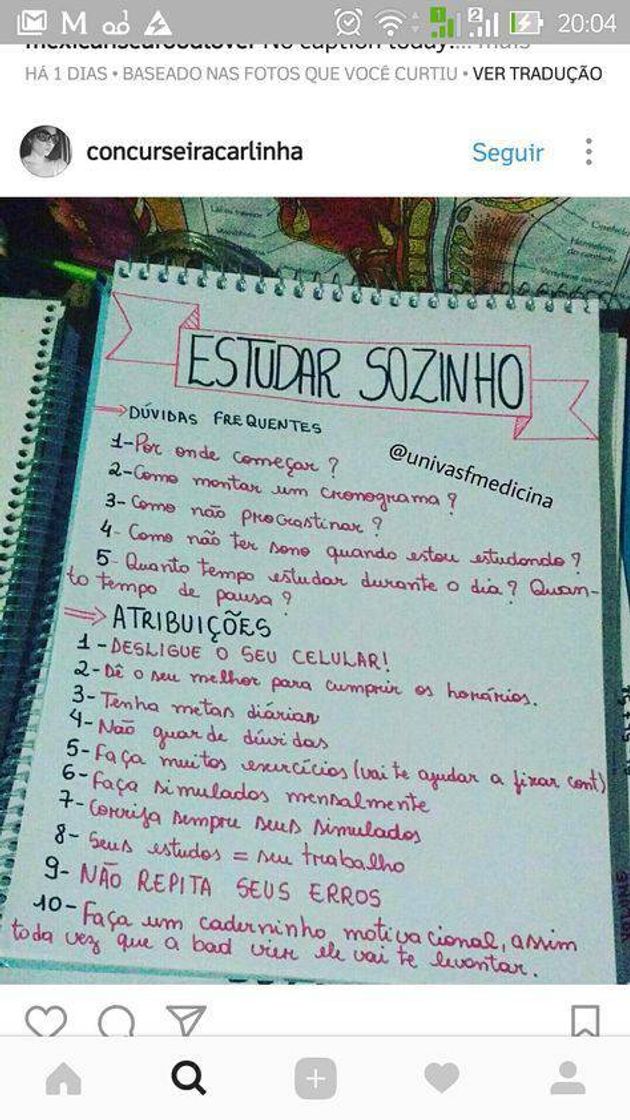 20:04
HÁ 1 DIAS • BASEADO NAS FOTOS QUE VOCÊ CURTIU • VER TRADUÇÃO
concurseiracarlinha
Seguir
ESTUDAR SOZINHO
DÚVIDAS FREQUENTES
@univasfmedicina
1-Por onde começar?
2-Como montar um cronograma?
3-Como não procrastinar?
4-Como não ter sono quando estou estudando?
5-Quanto tempo estudar durante o dia? Quan-
to tempo de pausa?
ATRIBUIÇÕES
1-DESLIGUE O SEU CELULAR!
2-Dê o seu melhor para cumprir os horários.
3-Tenha metas diárias
4-Não guarde dúvidas
5-Faça muitos exercícios (vai te ajudar a fixar cont)
6-Faça simulados mensalmente
7-Corrija sempre seus simulados
8-Seus estudos = seu trabalho
9-NÃO REPITA SEUS ERROS
10-Faça um caderninho motivacional, assim
toda vez que a bad vier ele vai te levantar.